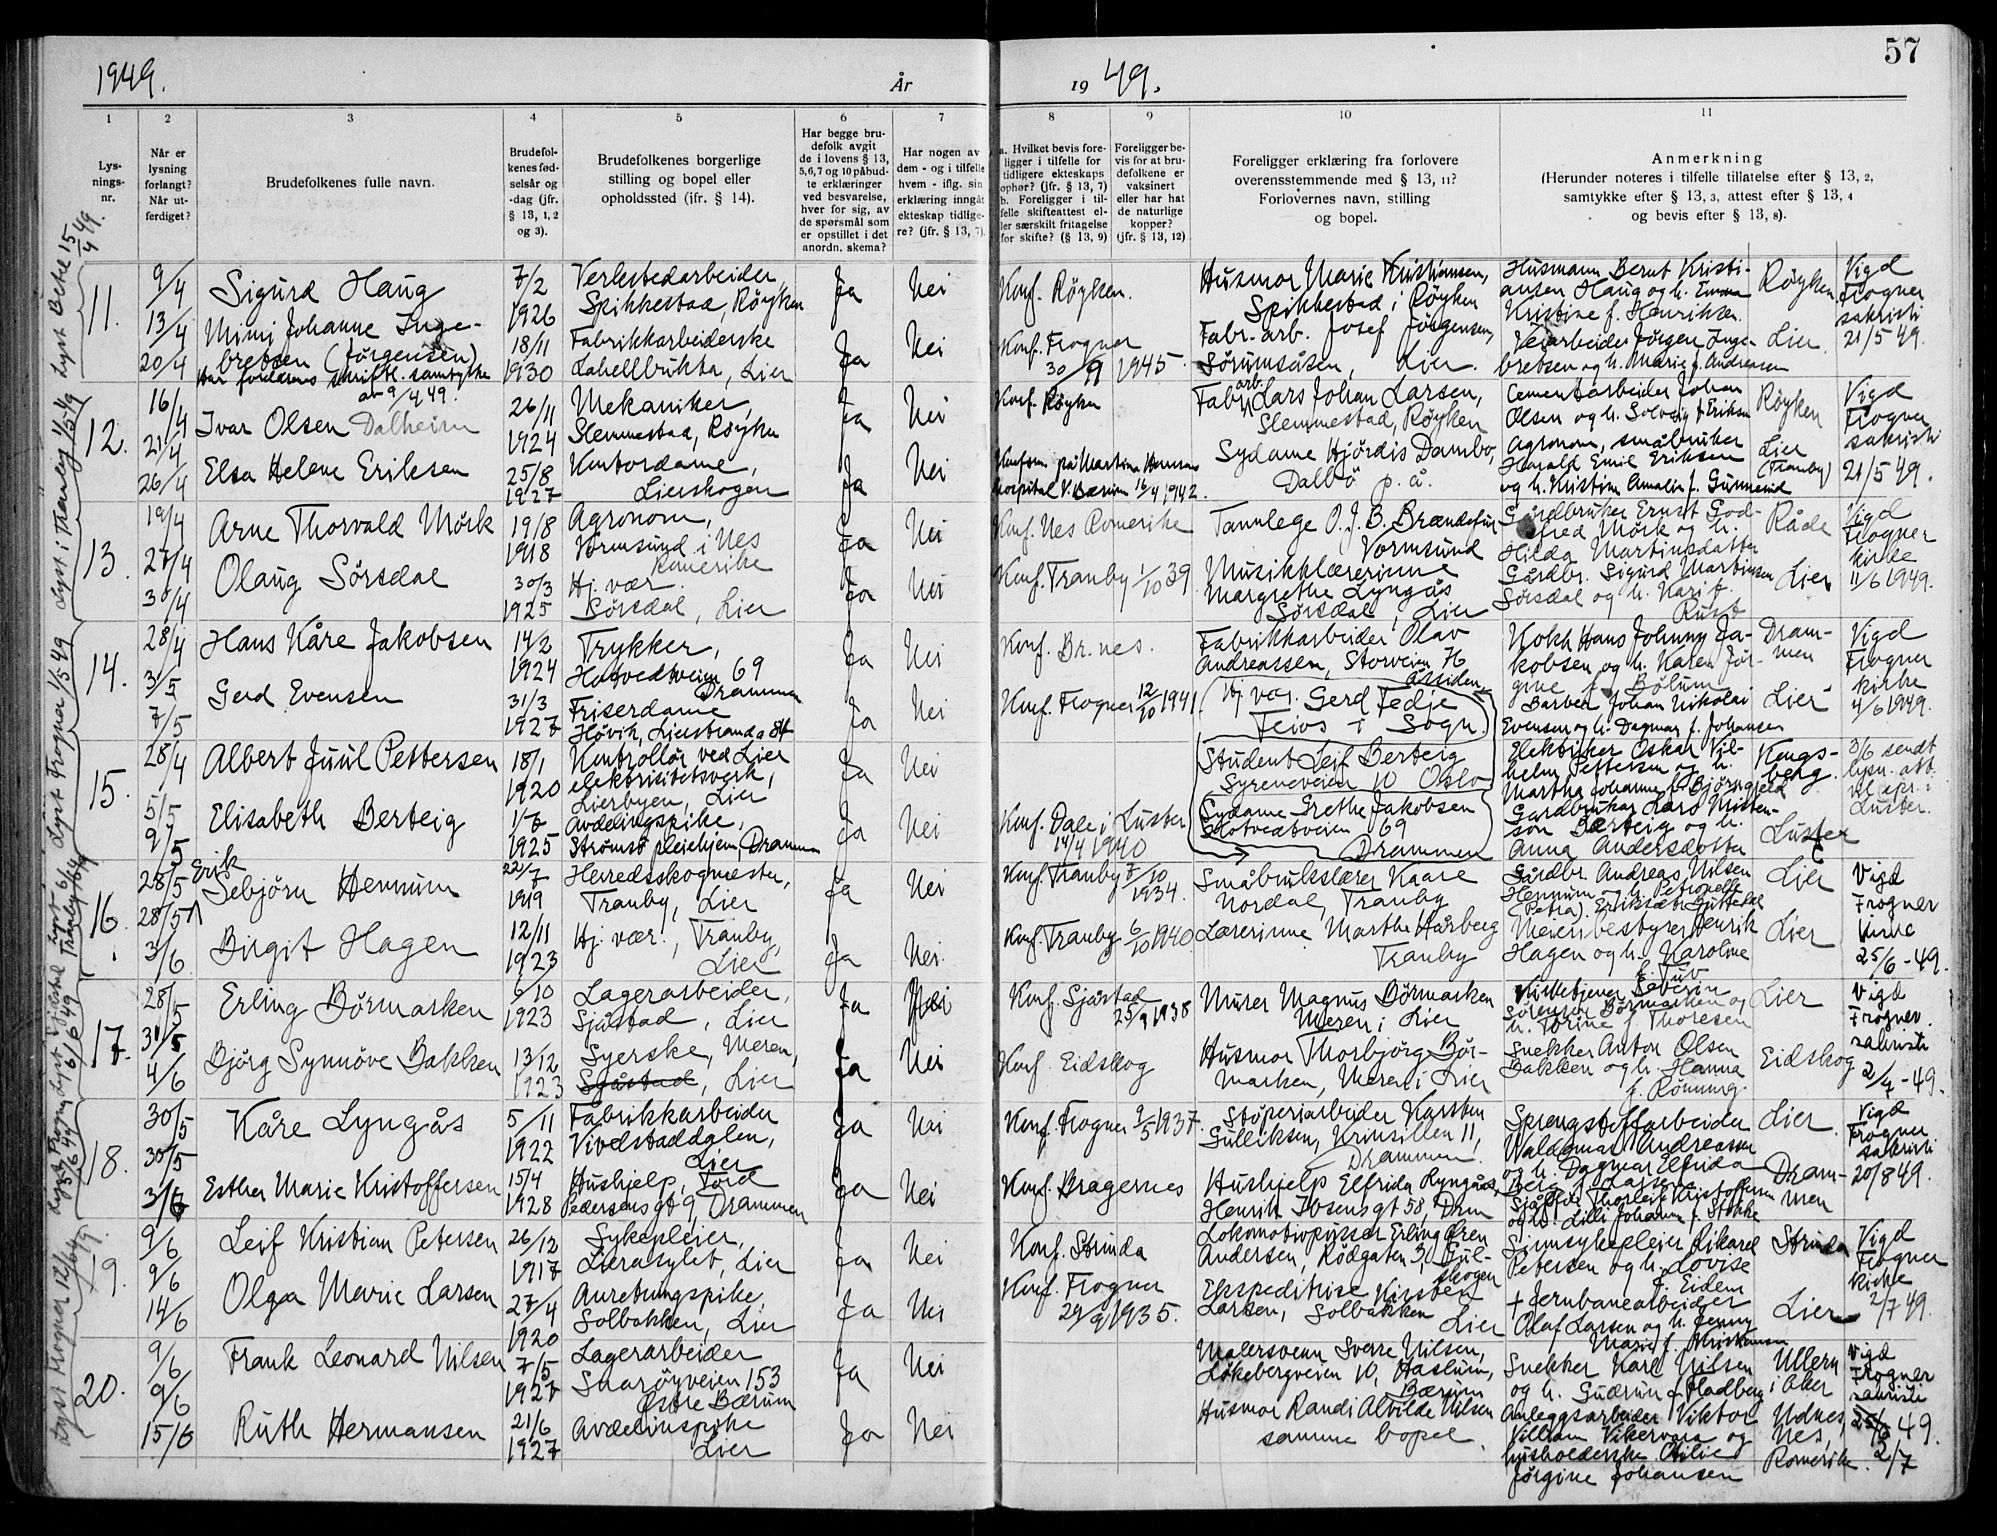 1949.
År
19 49.
57
1
2
3
4
5
6
7
8
9
10
11
Lys-
nings-
nr.
Når er
lysning
forlangt?
Når ut-
ferdiget?
Brudefolkenes fulle navn.
Brudefol-
kenes fød-
selsår og
-dag (jfr.
§ 13, 1, 2
og 3).
Brudefolkenes borgerlige
stilling og bopel eller
opholdssted (jfr. § 14).
Har begge bru-
defolk avgit
de i lovens § 13,
5,6,7 og 10 påbud-
te erklæringer
ved besvarelse,
hver for sig, av
de spørsmål som
er opstillet i det
anordn. skema?
Har nogen av
dem - og i tilfelle
hvem - iflg. sin
erklæring inngåt
ekteskap tidlige-
re? (jfr. § 13, 7).
a. Hvilket bevis fore-
ligger i tilfelle for
tidligere ekteskaps
ophør? (jfr. § 13, 7)
b. Foreligger i til-
felle skifteattest el-
ler særskilt fritagelse
for skifte? (§ 13, 9)
Foreligger be-
vis for at bru-
defolkene er
vaksinert
eller har hat
de naturlige
kopper?
(jfr. § 13, 12)
Foreligger erklæring fra forlovere
overensstemmende med § 13, 11?
Forlovernes navn, stilling
og bopel.
Anmerkning
(Herunder noteres i tilfelle tillatelse efter § 13, 2,
samtykke efter § 13, 3, attest efter § 13, 4
og bevis efter § 13, 8).
11.
9/4
13/4
20/4
Sigurd Haug
Mimi Johanne Inge-
bretsen (Jørgensen)
Har foreldrens skriftl. samtykke
av 9/4 49.
7/2
1926
18/11
1930
Verkstedarbeider,
Spikkestad, Røyken
Fabrikkarbeiderske
Lahellbukta, Lier
Ja
Ja
Nei
Nei
Konf. Røyken.
Konf. Frogner
30/9 1945
Husmor Marie Kristiansen,
Spikkestad i Røyken
Fabr. arb. Josef Jørgensen,
Sørumsåsen, Lier.
Husmann Bernt Kristi-
ansen Haug og h. Emma
Kristine f. Henriksen.
Veiarbeider Jørgen Inge-
bretsen og h. Marie f. Andersen
Røyken
Lier
Vigd
Frogner
sakristi
21/5 49.
12.
16/4
21/4
26/4
Ivar Olsen Dalheim
Elsa Helene Eriksen
26/11
1924
25/8
1927
Mekaniker,
Slemmestad, Røyken
Kontordame,
Lierskogen
Ja
Ja
Nei
Nei
Konf. Røyken
Konform. på Martina Hansens
Hospital V. Bærum 16/4 1942.
Fabr. arb. Lars Johan Larsen,
Slemmestad, Røyken
Sydame Hjördis Dambo,
Dalbö p. å.
Cementarbeider Johan
Olsen og h. Solveig f. Eriksen
Agronom, småbruker
Harald Emil Eriksen
og h. Kristine Amalie f. Gunnerud
Røyken
Lier
(Tranby)
Vigd
Frogner
sakristi
21/5 49.
13.
19/4
27/4
30/4
Arne Thorvald Mörk
Olaug Sörsdal
19/8
1918
30/3
1925
Agronom,
Vormsund i Nes
Romerike
Hj. vær.
Sørsdal, Lier
Ja
Ja
Nei
Nei
Konf. Nes Romerike
Konf. Tranby 1/10 39.
Tannlege O. J. B. Brændefur
Vormsund
Musikklærerinne
Margrethe Lyngås
Sørsdal, Lier
Gårdbruker Ernst God-
fred Mörk og h.
Hilda Martinsdatter
Gårdbr. Sigurd Martinsen
Sörsdal og h. Kari f.
Rust
Råde
Lier
Vigd
Frogner
kirke
11/6 1949.
14.
28/4
3/5
7/5
Hans Kåre Jakobsen
Gerd Evensen
14/2
1924
31/3
1927
Trykker,
Hotvedtveien 69
Drammen
Friserdame
Høvik, Lierstranda
Ja
Ja
Nei
Nei
Konf. Br.nes.
Konf. Frogner 12/10 1941
Fabrikkarbeider Olav
Andreassen, Storveien 76
Åssiden.
Sydame Grethe Jakobsen
Hotvedtveien 69
Drammen
Kokk Hans Johnny Ja-
kobsen og h. Karen Jør-
gine f. Bølum
Barber Johan Nikolai
Evensen og h. Dagmar f. Johansen
Dram-
men
Lier
Vigd
Frogner
kirke
4/6 1949.
15.
28/4
5/5
9/5
Albert Juul Pettersen
Elisabeth Berteig
18/1
1920
1/8
1925
Kontrollör ved Lier
elektrisitetsverk,
Lierbyen, Lier
Avdelingspike,
Strømsö pleiehjem, Drammen
Ja
Ja
Nei
Nei
Konf. Dale i Luster
14/4 1940
Hj. vær. Gerd Fedje
Feios i Sogn.
Student Leif Berteig
Syreneveien 10 Oslo
Elektriker Oskar Vil-
helm Pettersen og h.
Martha Johanne f. Bjørngjeld
Gardbrukar Lars Nilsen-
son Berteig og h.
Anna Andersdotter
Kongs-
berg
Luster
3/6 sendt
lysn. att.
til spr. i
Luster.
16.
28/5
28/5
3/6
Erik
Sebjörn Hennum
Birgit Hagen
22/7
1919
12/11
1923
Herredsskogmester,
Tranby, Lier
Hj. vær., Tranby,
Lier
Ja
Ja
Nei
Nei
Konf. Tranby 7/10
1934.
Konf. Tranby 6/10 1940
Småbrukslærer Kaare
Nordal, Tranby
Lærerinne Marthe Hårberg
Tranby
Gårdbr. Andreas Nilsen
Hennum og h. Petronelle
(Petra) Eriksdt. Guttedal
Meieribestyrer Henrik
Hagen og h. Karoline
f. Tuv
Lier
Lier
Vigd
Frogner
kirke
25/6 - 49.
17.
28/5
31/5
4/6
Erling Börmarken
Björg Synnöve Bakken
6/10
1923
13/12
1923
Lagerarbeider,
Sjåstad, Lier
Syerske, Meren,
Sjåstad, Lier
Ja
Ja
Nei
Nei
Konf. Sjåstad
25/9 1938
Konf. Eidskog
Murer Magnus Börmarken
Meren i Lier
Husmor Thorbjörg Bör-
marken, Meren i Lier
Kirketjener Severin
Sörensen Börmarken og
h. Torine f. Thoresen
Snekker Anton Olsen
Bakken og h. Hanna
f. Rönning.
Lier
Eidskog
Vigd
Frogner
sakristi
2/7 - 49.
18.
30/5
30/5
3/6
Kåre Lyngås
Esther Marie Kristoffersen
5/11
1922
15/4
1928
Fabrikkarbeider
Vivelstaddalen,
Lier
Hushjelp, Tord
Pedersens gt 9, Drammen
Ja
Ja
Nei
Nei
Konf. Frogner 9/5 1937.
Konf. Bragernes
Støperiarbeider Karsten
Gulliksen, Krinsillen 11,
Drammen
Hushjelp Elfrida Lyngås,
Henrik Ibsens gt 58, Drm
Sprengstoffarbeider
Waldemar Andreassen
og h. Dagmar Elfrida
Berg f. Larsen
Sjåfør Thorleif Kristoffersen
og h. Lilli Johanne f. Stokke
Lier
Dram-
men
Vigd
Frogner
sakristi
20/8 49.
19.
9/6
9/6
14/6
Leif Kristian Petersen
Olga Marie Larsen
26/12
1917
27/4
1920
Sykepleier,
Lierasylet, Lier
Anretningspike,
Solbakken, Lier
Ja
Ja
Nei
Nei
Konf. Strinda
Konf. Frogner
29/9 1935.
Lokomotivpusser Erling Øren
Andersen, Rödgaten 3, Gul-
skogen
Ekspeditrise Kirsten
Larsen, Solbakken
Lier
Sinnsykepleier Rikard
Petersen og h. Lovise
f. Eidem
+ Jernbanearbeider
Olaf Larsen og h. Jenny
Marie f. Kristiansen
Strinda
Lier
Vigd
Frogner
kirke
2/7 49.
20.
9/6
9/6
15/6
Frank Leonard Nilsen
Ruth Hermansen
7/5
1927
21/6
1927
Lagerarbeider
Snarøyveien 153
Østre Bærum
Avdelinspike
Lier
Ja
Ja
Nei
Nei
Malersvenn Sverre Nilsen,
Løkebergveien 10, Haslum,
Bærum
Husmor Randi Alvilde Nilsen
samme bopel.
Snekker Karl Nilsen
og h. Gudrun f. Fladberg
Anleggsarbeider Viktor
Villiam Vikervara og
husholderske Otilie
Jørgine Johansen
Ullern
i Aker
Udnes,
Nes,
Romerike.
Vigd
Frogner
sakristi
49.
2/7
Lyst Betel 15/4 49.
Lyst i Tranby 1/5 49
Lyst Frogner 1/5 49
Lyst Frogner 12/6 49.